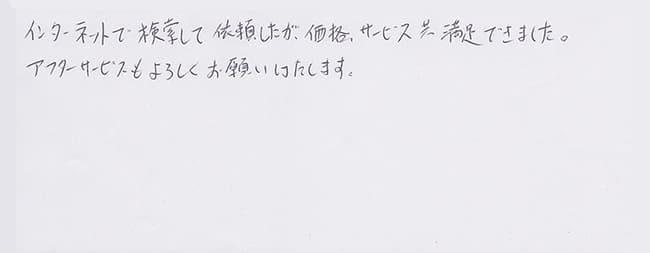 インターネットで検索して依頼したが、価格、サービス共満足できました。
アフターサービスもよろしくお願いいたします。